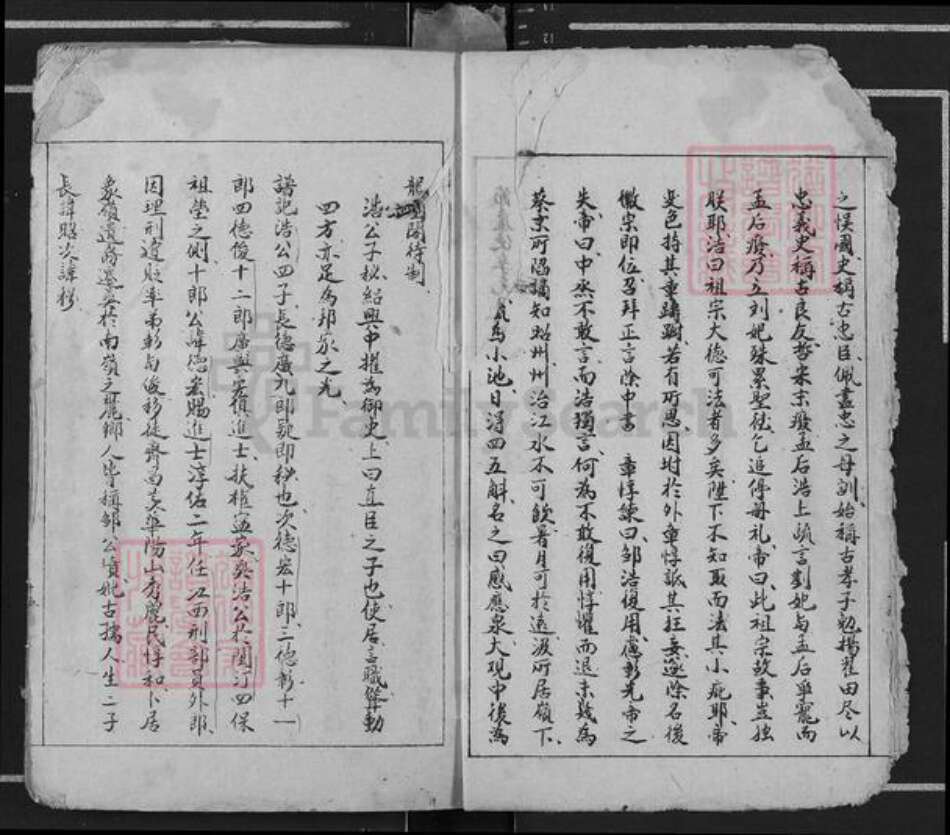 之悮國史稱古忠臣佩盡忠之母訓始稱古孝子勉揚翟田尽以
忠義史稱古良友哲宋宗癈孟后浩上疏言劉妃与孟后爭寵而
孟后癈乃立刘妃殊累聖德乞追停册礼帝曰此祖宗故事豈独
朕耶浩曰祖宗大德可法者多矣陛下不知取而法其小疵耶帝
变色持其章躊躇若有所思因付於外章惇詆其狂妄遂除名後
徽宗即位召拜正言除中書 章惇諫曰邹浩復用慮彰先帝之
失帝曰中丞不敢言而浩獨言何為不敢復用惇懼而退未幾為
蔡京所陷謫知昭州州治江水不可飲暑月可於遠汲所居嶺下
為小池日淂四五斛名之曰感應泉大观中後為
龍圖閣待制
浩公子秘紹興中擢為御史上曰直臣之子也使居言職聳動
四方亦足為邦家之光
譜記浩公四子長德廣九郎疑即秘也次德宏十郎三德彰十一
郎四德俊十二郎廣與宏俱進士扶柩寧家奐浩公於閩汀四保
祖塋之側十郎公諱德宏賜進士淳佑二年任江西刑部員外郎
因理刑遠貶率弟彰与俊移徒齊昌芝華陽山秀麗民惇和卜居
象嶺遺跡還葬於南嶺之麓鄉人皆稱邹公墳妣古孺人生二子
長諱賜次諱